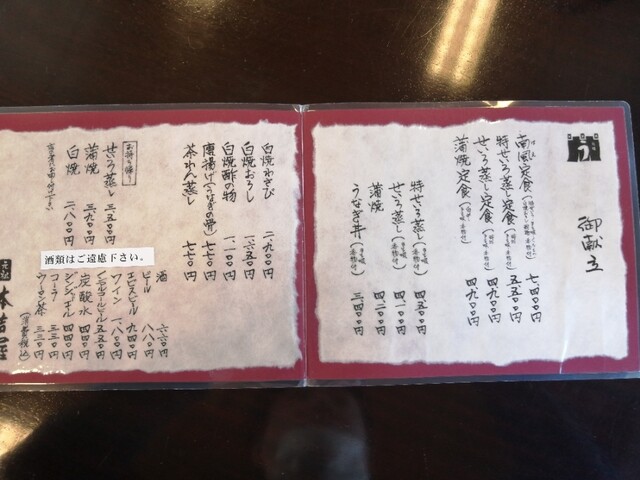 う
御献立
南風定食 七、四〇〇円
特せいろ蒸し定食 五、五〇〇円
せいろ蒸し定食 四、九〇〇円
蒲焼定食 四、九〇〇円
特せいろ蒸し 四、八〇〇円
せいろ蒸し 四、二〇〇円
蒲焼 四、二〇〇円
うなぎ丼 三、四〇〇円
白焼わさび 二、九〇〇円
白焼おろし 一、六五〇円
白焼酢の物 一、一〇〇円
唐揚げ(うなぎの骨) 七七〇円
茶わん蒸し 七七〇円
お持ち帰り
せいろ蒸し 三、五〇〇円
蒲焼 三、九〇〇円
白焼 二、八〇〇円
酒類はご遠慮下さい。
酒 六六〇円
ビール 八八〇円
エビスビール 九四〇円
ワイン 一、八〇〇円
ノンアルコールビール 五五〇円
炭酸水 四四〇円
ジンジャエール 四四〇円
コーラ 三三〇円
ウーロン茶 三三〇円
元祖 本吉屋